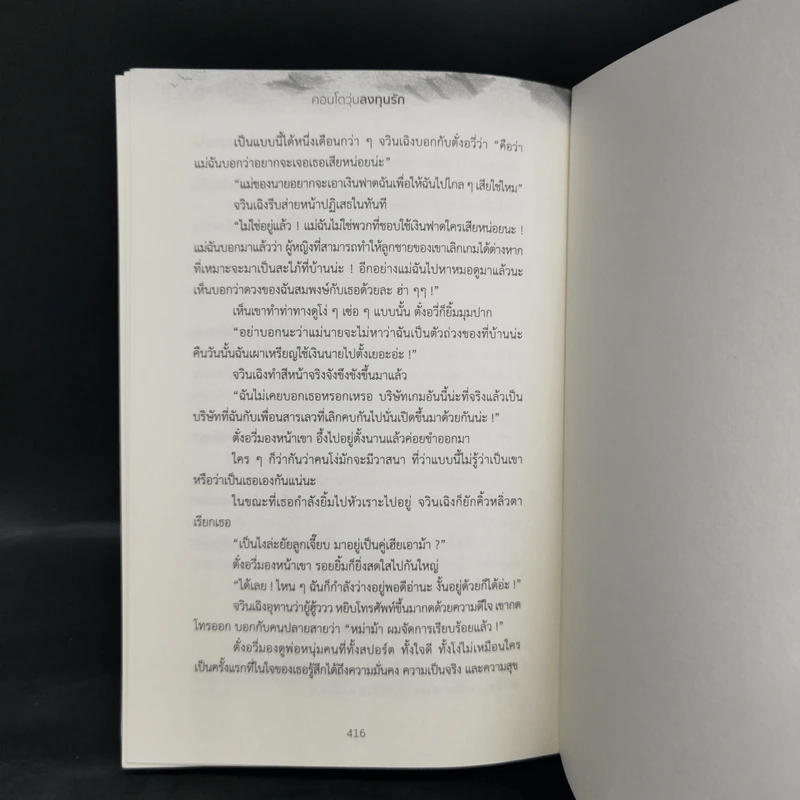 คอนโดวุ่นลงทุนรัก
เป็นแบบนี้ได้หนึ่งเดือนกว่า ๆ จวินเฉิงบอกกับตั่งอวี่ว่า “คือว่า
แม่ฉันบอกว่าอยากจะเจอเธอเสียหน่อยน่ะ”
“แม่ของนายอยากจะเอาเงินฟาดฉันเพื่อให้ฉันไปไกล ๆ เสียใช่ไหม”
จวินเฉิงรีบส่ายหน้าปฏิเสธในทันที
“ไม่ใช่อยู่แล้ว ! แม่ฉันไม่ใช่พวกที่ชอบใช้เงินฟาดใครเสียหน่อยนะ !
แม่ฉันบอกมาแล้วว่า ผู้หญิงที่สามารถทำให้ลูกชายของเขาเลิกเกมได้ต่างหาก
ที่เหมาะจะมาเป็นสะใภ้ที่บ้านน่ะ ! อีกอย่างแม่ฉันไปหาหมอดูมาแล้วนะ
เห็นบอกว่าดวงของฉันสมพงษ์กับเธอด้วยละ ฮ่า ๆๆ !”
เห็นเขาทำท่าทางดูโง่ ๆ เซ่อ ๆ แบบนั้น ตั่งอวี่ก็ยิ้มมุมปาก
“อย่าบอกนะว่าแม่นายจะไม่หาว่าฉันเป็นตัวถ่วงของที่บ้านน่ะ
คืนวันนั้นฉันเผาเหรียญใช้เงินนายไปตั้งเยอะอ่ะ !”
จวินเฉิงทำสีหน้าจริงจังขึงขังขึ้นมาแล้ว
“ฉันไม่เคยบอกเธอหรอกเหรอ บริษัทเกมอันนี้น่ะที่จริงแล้วเป็น
บริษัทที่ฉันกับเพื่อนสารเลวที่เลิกคบกันไปนั่นเปิดขึ้นมาด้วยกันน่ะ !”
ตั่งอวี่มองหน้าเขา อึ้งไปอยู่ตั้งนานแล้วค่อยขำออกมา
ใคร ๆ ก็ว่ากันว่าคนโง่มักจะมีวาสนา ที่ว่าแบบนี้ไม่รู้ว่าเป็นเขา
หรือว่าเป็นเธอเองกันแน่นะ
ในขณะที่เธอกำลังยิ้มไปหัวเราะไปอยู่ จวินเฉิงก็ยักคิ้วหลิ่วตา
เรียกเธอ
“เป็นไงล่ะยัยลูกเจี๊ยบ มาอยู่เป็นคู่เฮียเอาม้า ?”
ตั่งอวี่มองหน้าเขา รอยยิ้มก็ยิ่งสดใสไปกันใหญ่
“ได้เลย ! ไหน ๆ ฉันก็กำลังว่างอยู่พอดีอ่านะ งั้นอยู่ด้วยก็ได้อ่ะ !”
จวินเฉิงอุทานว่ายู้ฮู้ววว หยิบโทรศัพท์ขึ้นมากดด้วยความดีใจ เขากด
โทรออก บอกกับคนปลายสายว่า “หม่าม้า ผมจัดการเรียบร้อยแล้ว !”
ตั่งอวี่มองดูพ่อหนุ่มคนที่ทั้งสปอร์ต ทั้งใจดี ทั้งโง่ไม่เหมือนใคร
เป็นครั้งแรกที่ในใจของเธอรู้สึกได้ถึงความมั่นคง ความเป็นจริง และความสุข
416